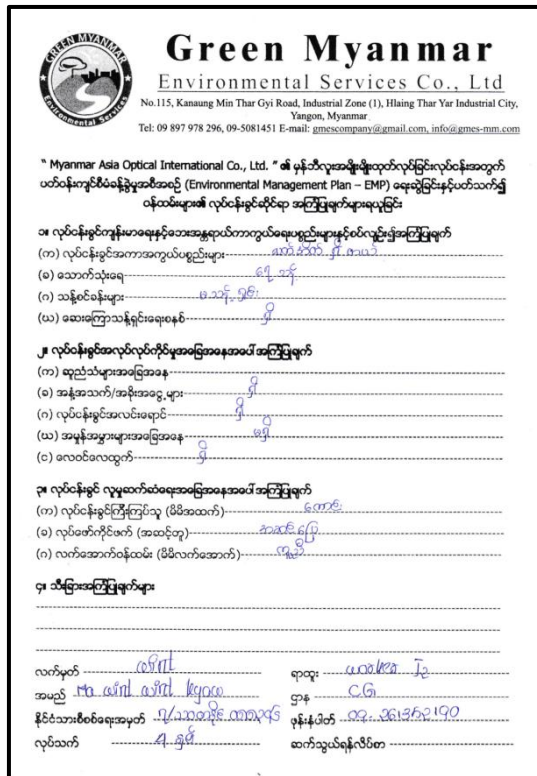 GREEN MYANMAR
Environmental Services
Green Myanmar
Environmental Services Co., Ltd
No.115, Kanaung Min Thar Gyi Road, Industrial Zone (1), Hlaing Thar Yar Industrial City,
Yangon, Myanmar
Tel: 09 897 978 296, 09-5081451 E-mail: gmescompany@gmail.com, info@gmes-mm.com
" Myanmar Asia Optical International Co., Ltd. " ၏ မှန်ဘီလူးအမျိုးမျိုးထုတ်လုပ်ခြင်းလုပ်ငန်းအတွက်
ပတ်ဝန်းကျင်စီမံခန့်ခွဲမှုအစီအစဉ် (Environmental Management Plan – EMP) ရေးဆွဲခြင်းနှင့်ပတ်သက်၍
ဝန်ထမ်းများ၏ လုပ်ငန်းခွင်ဆိုင်ရာ အကြံပြုချက်များရယူခြင်း
၁။ လုပ်ငန်းခွင်ကျန်းမာရေးနှင့်ဘေးအန္တရာယ်ကာကွယ်ရေးပစ္စည်းများနှင့်စပ်လျဉ်း၍အကြံပြုချက်
(က) လုပ်ငန်းခွင်အကာအကွယ်ပစ္စည်းများ ရှိ
(ခ) သောက်သုံးရေ ရေ သန့်
(ဂ) သန့်စင်ခန်းများ မသန့် ရှင်း
(ဃ) ဆေးကြောသန့်ရှင်းရေးစနစ် ရှိ
၂။ လုပ်ငန်းခွင်အလုပ်လုပ်ကိုင်မှုအခြေအနေအပေါ် အကြံပြုချက်
(က) ဆူညံသံများအခြေအနေ
(ခ) အနံ့အသက်/အခိုးအငွေ့များ ရှိ
(ဂ) လုပ်ငန်းခွင်အလင်းရောင် ရှိ
(ဃ) အမှုန်အမွှားများအခြေအနေ မရှိ
(င) လေဝင်လေထွက် ရှိ
၃။ လုပ်ငန်းခွင် လူမှုဆက်ဆံရေးအခြေအနေအပေါ် အကြံပြုချက်
(က) လုပ်ငန်းခွင်ကြီးကြပ်သူ (မိမိအထက်) ကောင်း
(ခ) လုပ်ဖော်ကိုင်ဖက် (အဆင့်တူ) အဆင်ပြေ
(ဂ) လက်အောက်ဝန်ထမ်း (မိမိလက်အောက်) ကူညီ
၄။ သီးခြားအကြံပြုချက်များ
လက်မှတ် wint
ရာထူး worker I2
အမည် Ma wint wint kyaw
ဌာန CG1
နိုင်ငံသားစိစစ်ရေးအမှတ်
ဖုန်းနံပါတ် 09-261362190
လုပ်သက် ၅ နှစ်
ဆက်သွယ်ရန်လိပ်စာ